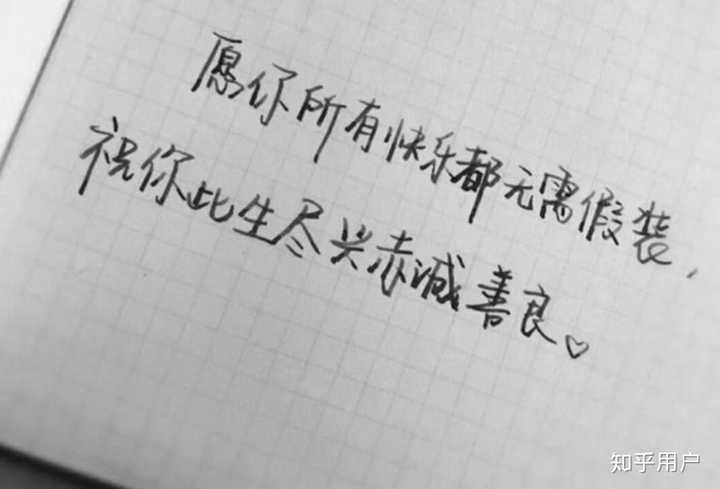 愿你所有快乐都无需假装，
祝你此生尽兴赤诚善良。♡
知乎用户